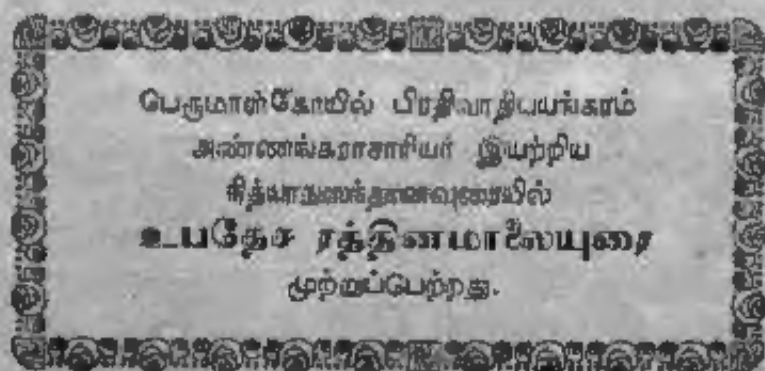 பெருமாள்கோயில் பிரதிவாதிபயங்கரம்
அண்ணங்கராசாரியர் இயற்றிய
நித்யாநுஸந்தானவுரையில்
உபதேச ரத்தினமாலையுரை
முற்றுப்பெற்றது.